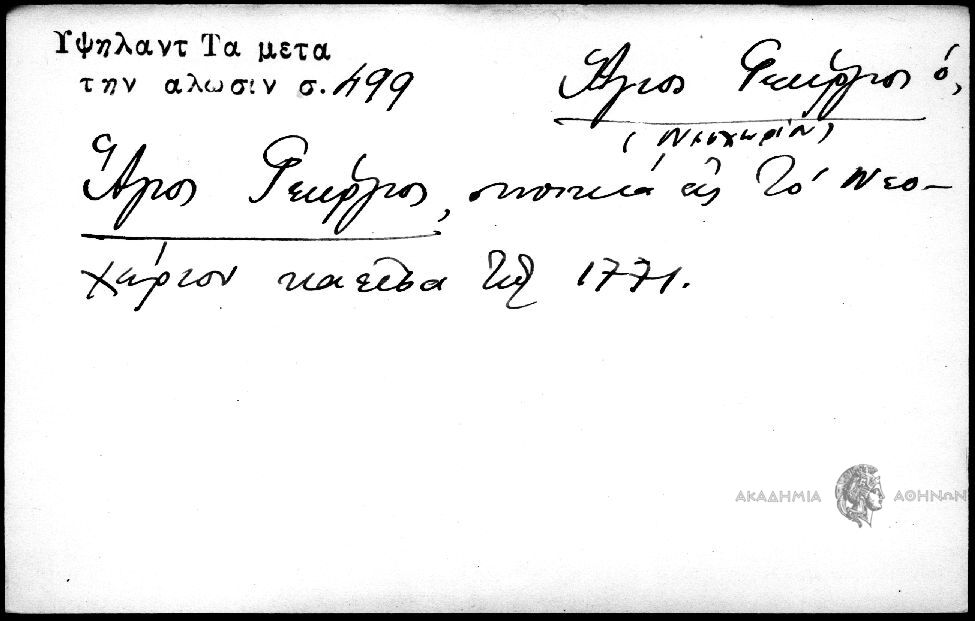 Υψηλαντ Τα μετα
την αλωσιν σ. 499
Ἅγιος Γεώργιος ὁ,
(Νεοχωρίον)
Ἅγιος Γεώργιος, σκοπιὰ εἰς τὸ Νεο-
χώριον καεῖσα τῷ 1771.
ΑΚΑΔΗΜΙΑ ΑΘΗΝΩΝ